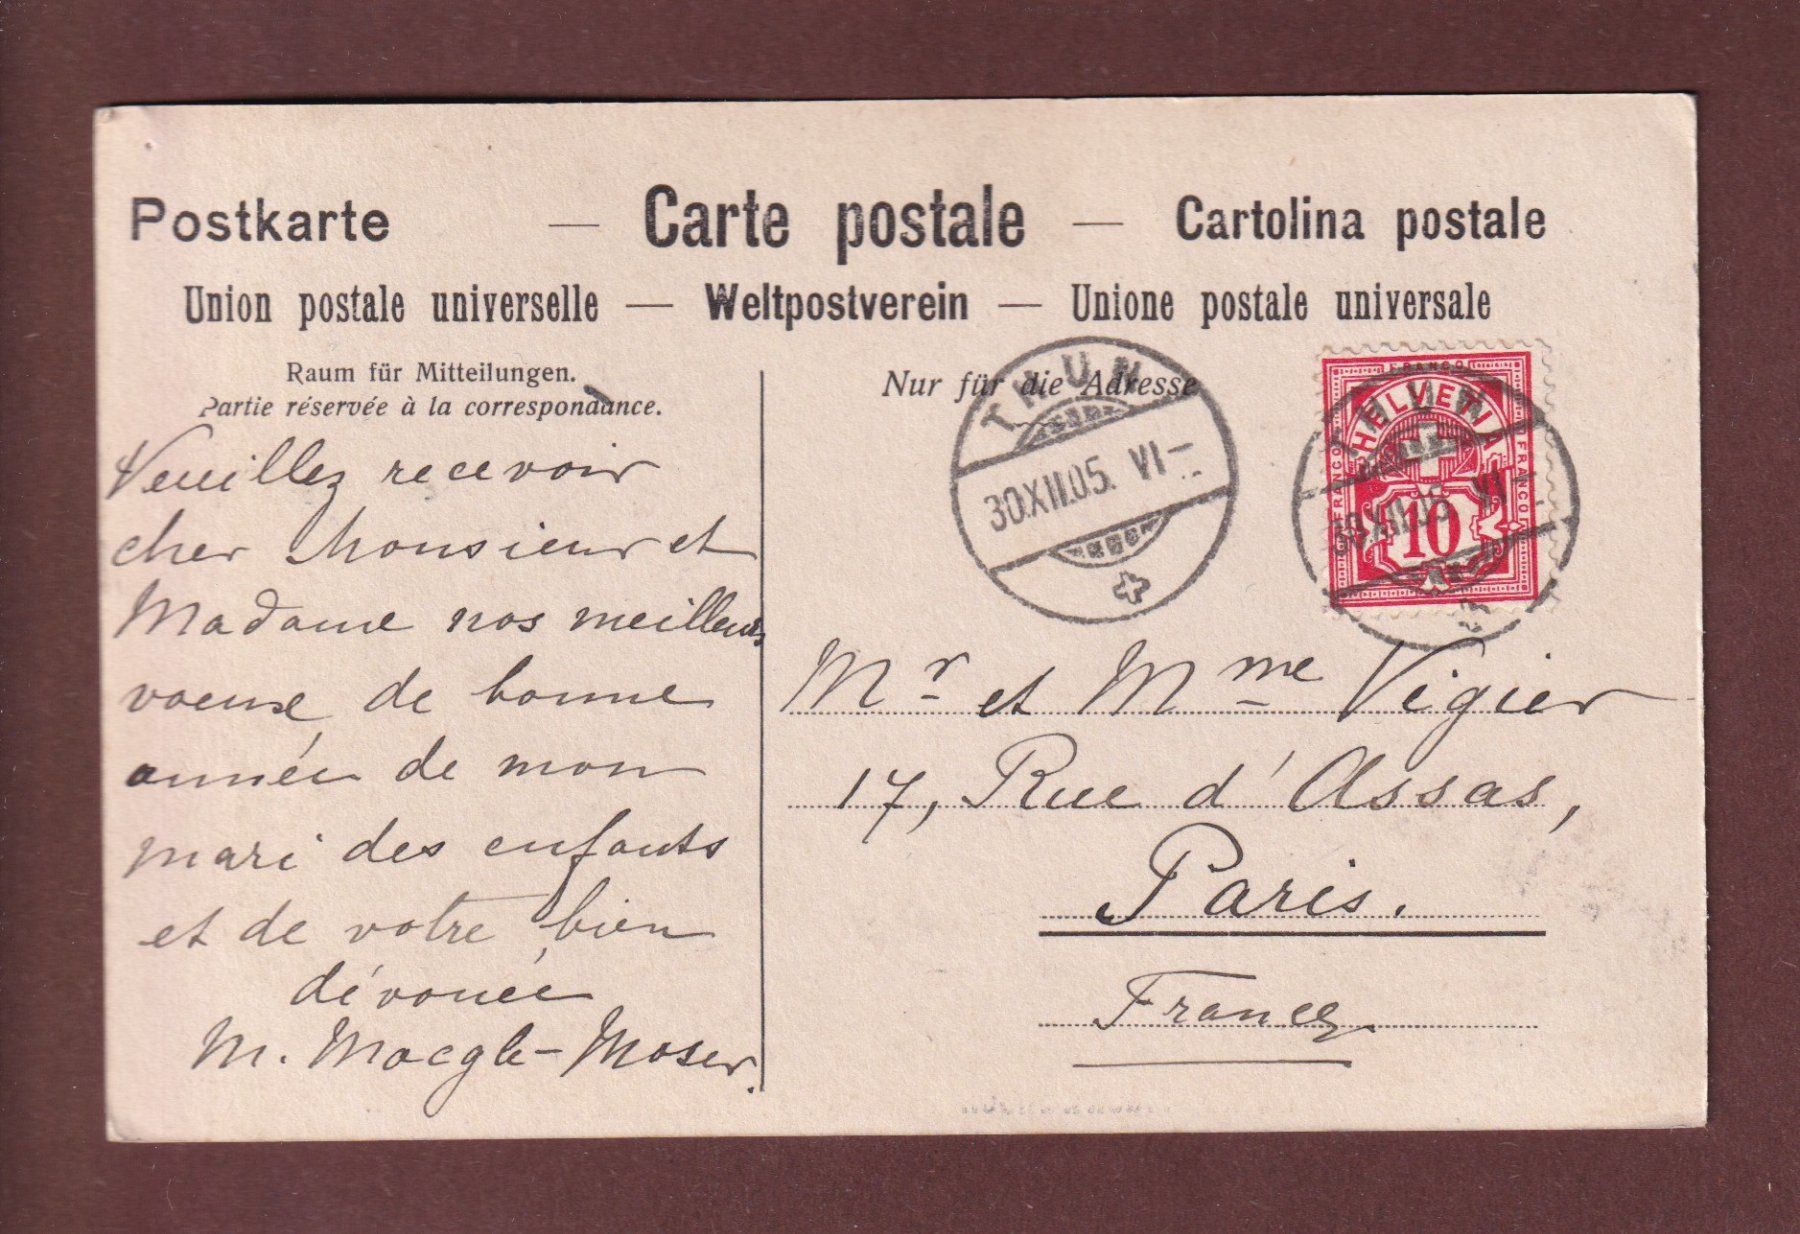 Postkarte — Carte postale — Cartolina postale
Union postale universelle — Weltpostverein — Unione postale universale
Raum für Mitteilungen.
Partie réservée à la correspondance.
Nur für die Adresse
THUN
30.XII.05. VI-
FRANCO
FRANCO
FRANCO
HELVETIA
10
THUN
30.XII.05 VI-
Veuillez recevoir
cher Monsieur et
Madame nos meilleurs
voeux de bonne
année de mon
mari des enfants
et de votre bien
dévouée
M. Moegle-Moser.
Mr et Mme Vigier
17, Rue d'Assas,
Paris.
France.